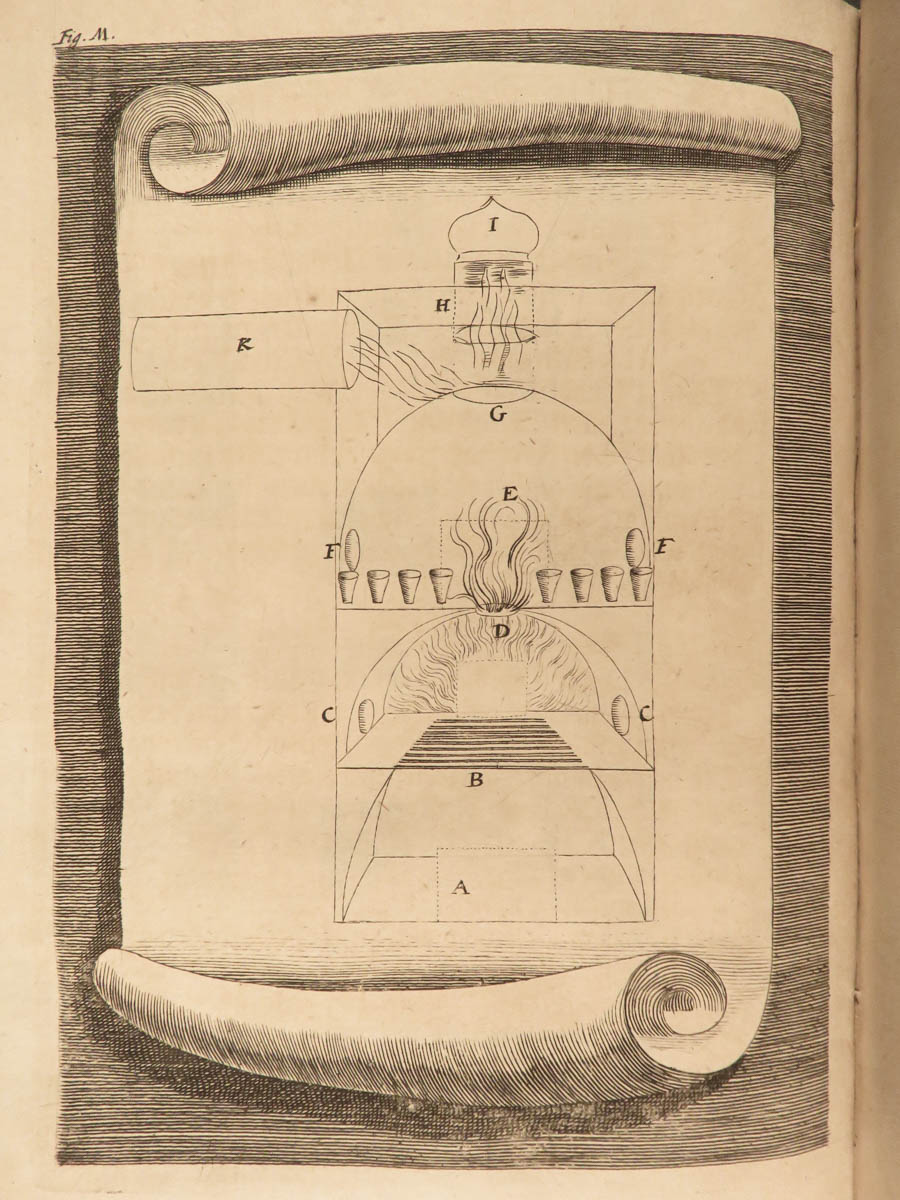 Fig. M.
I
H
K
G
E
F F
D
C C
B
A